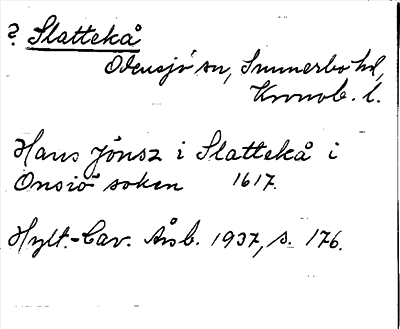 ? Slattekå
Odensjö sn, Sunnerbo hd,
Kronob. l.
Hans Jönsz i Slattekå i
Onsiö soken 1617.
Hylt.-Cav. Årsb. 1937, s. 176.